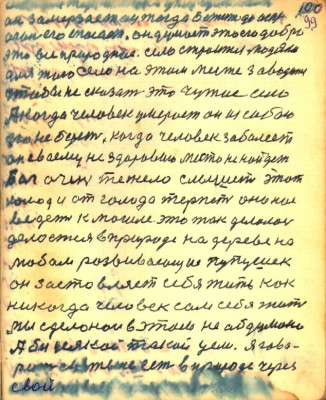 100
99
он замерзает он тогда бежит до
его спасает. он думает это его добро
это все природное. село строится людями
для того село на этом месте заводят
чтобы не сказать это чужое село
А когда человек умерает он и с собою
его не берет, когда человек заболеет
он своему не здоровию место не найдет
Ему очень тежело слышать этот
холод и от голода терпеть оно нас
ведет к могиле это так делалось
делается в природе на дереве на
любом развивающие пупушек
он заставляет себя жить как
никогда человек сам себя жить
мы сделоной в этом не обдумано
А бы всякой такой цели. Я гово-
рит есть в природе через
свой